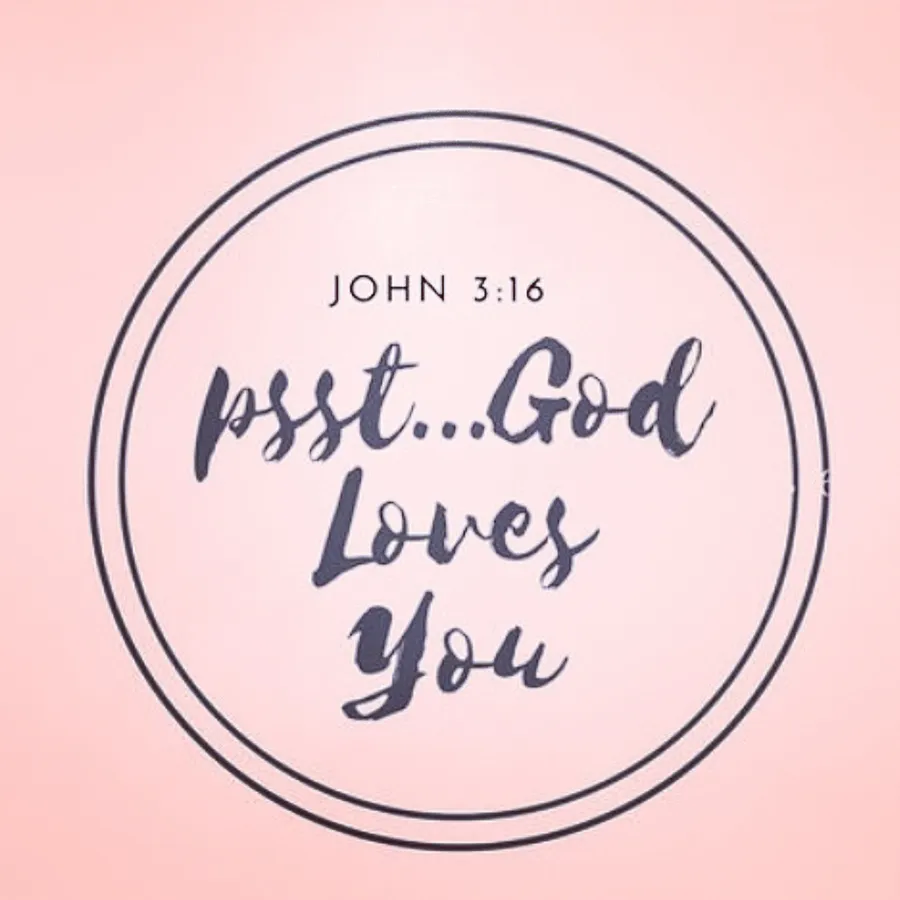 JOHN 3:16
psst...God
Loves
You